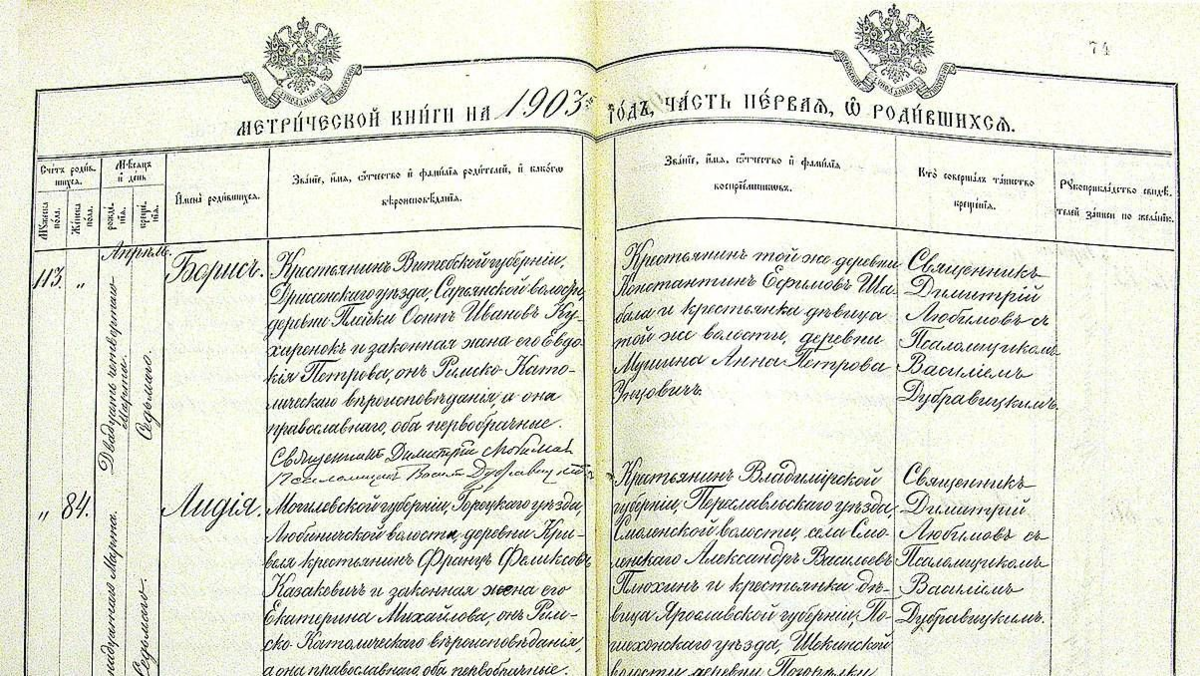 74
МЕТРИ́ЧЕСКОЙ КНИ́ГИ НА 1903 ГО́ДЪ, ЧА́СТЬ ПЕ́РВАЯ, Ѿ РОДИ́ВШИХСЯ.
Сче́тъ роди́в-
шихся.
Му́жеска по́ла.
Же́нска по́ла.
Мѣ́сяцъ
и҆ де́нь
рожде́нія.
креще́нія.
И҆мена̀ роди́вшихся.
Зва́ніе, и҆́мя, ѻ҆́тчество и҆ фами́лія роди́телей, и҆ како́гѡ
вѣроисповѣ́данія.
Зва́ніе, и҆́мя, ѻ҆́тчество и҆ фами́лія
воспрїе́мниковъ.
Кто̀ соверша́лъ та́инство
креще́нія.
Рꙋкоприкла́дство свидѣ́-
телей за́писи по жела́нію.
Апрѣль.
113.
"
Двадцать четвертаго
Марта.
Седьмого.
Борисъ.
Крестьянинъ Витебской губерніи,
Дриссенскаго уѣзда, Сарьянской волости,
деревни Плейки Осипъ Ивановъ Ку-
харенокъ и законная жена его Евдо-
кія Петрова, онъ Римско-Като-
лическаго вѣроисповѣданія, а она
православнаго, оба первобрачные.
Священникъ Димитрій Любимовъ
Псаломщикъ Васил Дубравицкій
Крестьянинъ той же деревни
Константинъ Ефимовъ Ша-
бала и крестьянка дѣвица
той же волости, деревни
Анна Петрова
Священникъ
Димитрій
Любимовъ съ
Псаломщикомъ
Василіемъ
Дубравицкимъ.
"
84.
Марта.
Седьмого
Лидія.
Могилевской губерніи, Горецкаго уѣзда,
волости, деревни Кри-
веля крестьянинъ Францъ Феликсовъ
Казакевичъ и законная жена его
Екатерина Михайлова, онъ Рим-
ско-Католическаго вѣроисповѣданія,
а она православнаго, оба первобрачные.
Крестьянинъ Владимірской
губерніи, Переславльскаго уѣзда,
Смоленской волости, села Смо-
ленскаго Александръ Васильевъ
Плюхинъ и крестьянка дѣ-
вица Ярославской губерніи, По-
шехонскаго уѣзда, Щекинской
волости деревни
Священникъ
Димитрій
Любимовъ съ
Псаломщикомъ
Василіемъ
Дубравицкимъ.